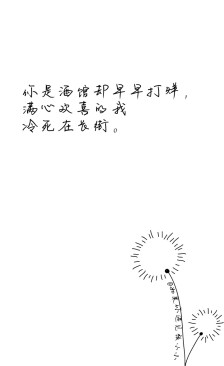 你是酒馆却早早打烊，
满心欢喜的我
冷死在长街。